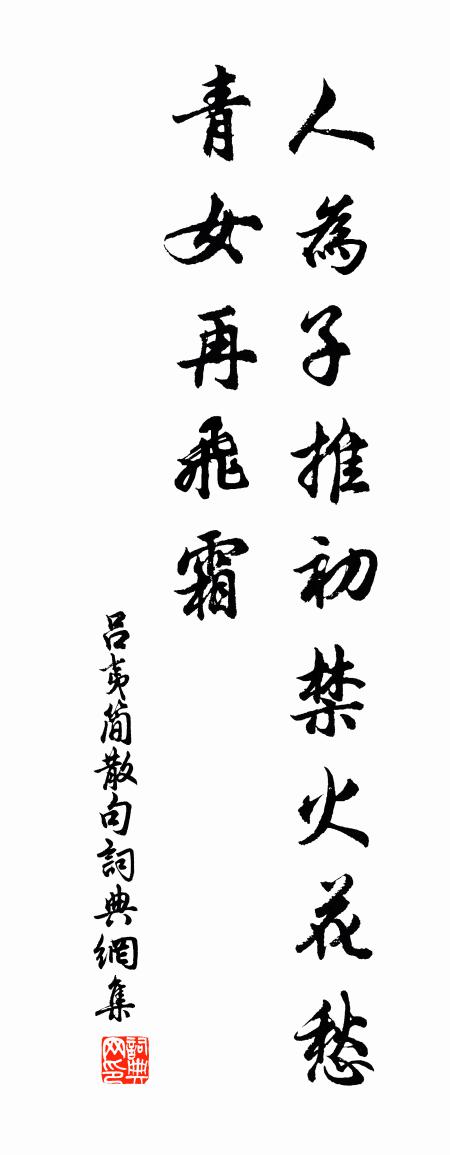 人為子推初禁火花愁
青女再飛霜
吕夷简散句詞典網集
詞典网印